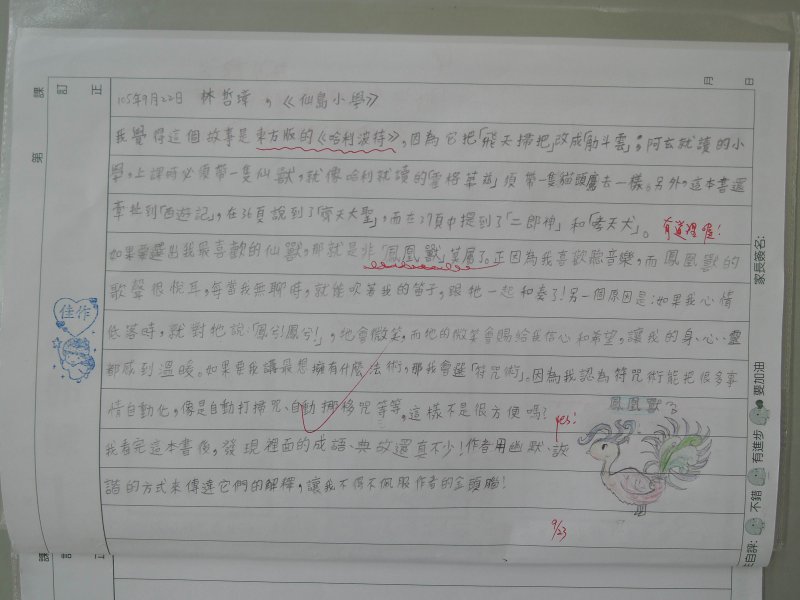 105年9月22日 林哲瑋,《仙島小學》
我覺得這個故事是東方版的《哈利波特》,因為它把「飛天掃把」改成「筋斗雲」;阿玄就讀的小
學,上課時必須帶一隻仙獸,就像哈利就讀的「霍格華茲」須帶一隻貓頭鷹去一樣。另外,這本書還
牽扯到「西遊記」,在36頁說到了「齊天大聖」,而在37頁中提到了「二郎神」和「哮天犬」。
有道理喔!
如果要選出我最喜歡的仙獸,那就是非「鳳凰獸」莫屬了。正因為我喜歡聽音樂,而鳳凰獸的
歌聲很悅耳,每當我無聊時,就能吹著我的笛子,跟牠一起和奏了!另一個原因是:如果我心情
低落時,就對牠說:「鳳兮!鳳兮!」,牠會微笑,而牠的微笑會賜給我信心和希望,讓我的身、心、靈
都感到溫暖。如果要我講最想擁有什麼法術,那我會選「符咒術」。因為我認為符咒術能把很多事
情自動化,像是自動打掃咒、自動挪移咒等等,這樣不是很方便嗎?
yes!
鳳凰獸
我看完這本書後,發現裡面的成語、典故還真不少!作者用幽默、詼
諧的方式來傳達它們的解釋,讓我不得不佩服作者的金頭腦!
9/23
佳作
第 課
訂 正
月 日
家長簽名:
自評: 不錯 有進步 要加油
課 訂 正